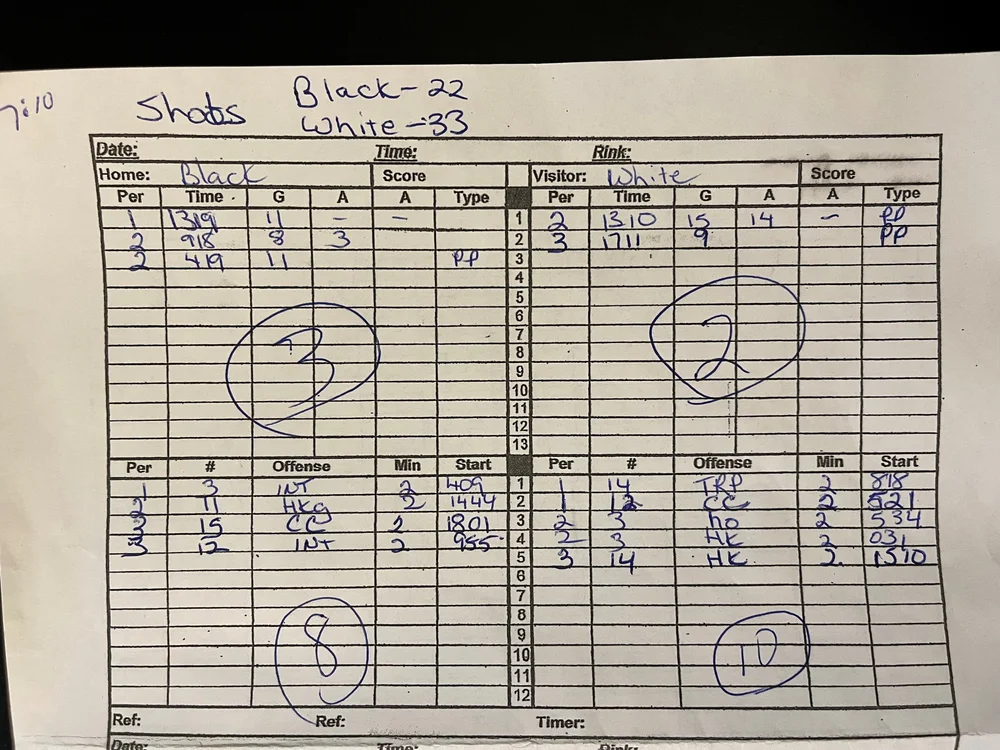 7:10
Shots Black-22
White-33
Date: Time: Rink:
Home: Black Score Visitor: White Score
Per Time G A A Type Per Time G A A Type
1 1319 11 - - 1 2 1310 15 14 - PP
2 918 8 3 2 3 1711 9 PP
2 419 11 PP 3
4
5
6
7
3 2
8
9
10
11
12
13
Per # Offense Min Start Per # Offense Min Start
1 3 INT 2 409 1 1 14 TRP 2 818
2 11 HKg 2 1444 2 1 12 CC 2 521
3 15 CC 2 1801 3 2 3 ho 2 534
3 12 INT 2 955 4 2 3 HK 2 031
5 3 14 HK 2 1510
6
7
8
9
8 10
10
11
12
Ref: Ref: Timer:
Date: Time: Rink: